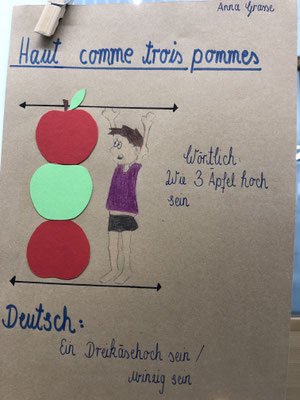 Anna Grasse
Haut comme trois pommes
Wörtlich:
Wie 3 Äpfel hoch
sein
Deutsch:
Ein Dreikäsehoch sein /
winzig sein